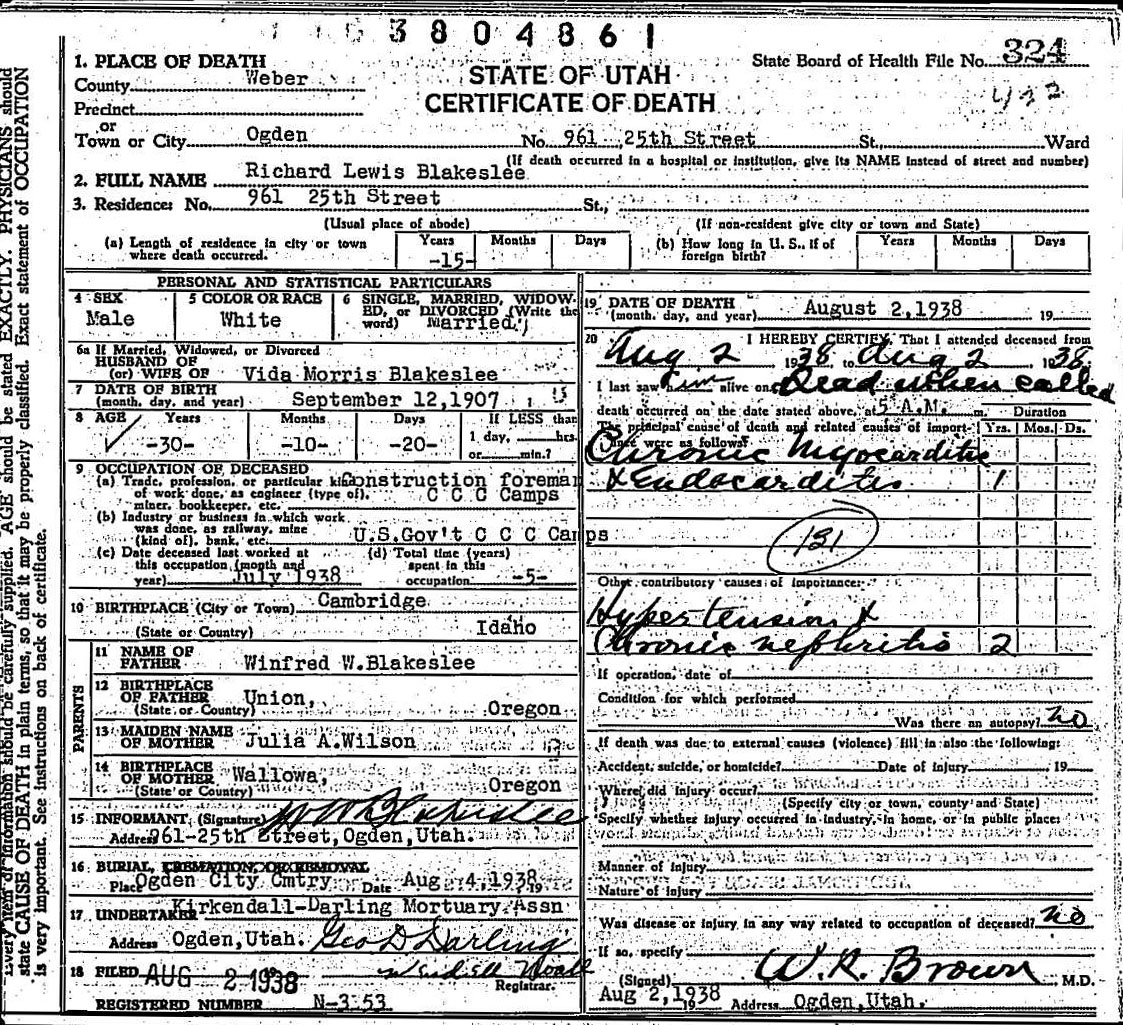 3804861
1. PLACE OF DEATH
County Weber
Precinct
or
Town or City Ogden No. 961 25th Street St., Ward
(If death occurred in a hospital or institution, give its NAME instead of street and number)
STATE OF UTAH
CERTIFICATE OF DEATH
State Board of Health File No. 324
432
2. FULL NAME Richard Lewis Blakeslee
3. Residence: No. 961 25th Street St.,
(Usual place of abode) (If non-resident give city or town and State)
(a) Length of residence in city or town where death occurred. Years -15- Months Days
(b) How long in U. S., if of foreign birth? Years Months Days
PERSONAL AND STATISTICAL PARTICULARS
4 SEX Male
5 COLOR OR RACE White
6 SINGLE, MARRIED, WIDOWED, or DIVORCED (Write the word) Married
6a If Married, Widowed, or Divorced
HUSBAND OF
(or) WIFE OF Vida Morris Blakeslee
7 DATE OF BIRTH
(month, day, and year) September 12,1907
8 AGE Years -30- Months -10- Days -20- If LESS than 1 day, hrs. or min.?
9 OCCUPATION OF DECEASED
(a) Trade, profession, or particular kind of work done, as engineer (type of), miner, bookkeeper, etc. Construction foreman
C C C Camps
(b) Industry or business in which work was done, as railway, mine (kind of), bank, etc. U.S.Gov't C C C Camps
(c) Date deceased last worked at this occupation (month and year) July 1938
(d) Total time (years) spent in this occupation -5-
10 BIRTHPLACE (City or Town) Cambridge
(State or Country) Idaho
PARENTS
11 NAME OF FATHER Winfred W.Blakeslee
12 BIRTHPLACE OF FATHER Union,
(State or Country) Oregon
13 MAIDEN NAME OF MOTHER Julia A.Wilson
14 BIRTHPLACE OF MOTHER Wallowa,
(State or Country) Oregon
15 INFORMANT (Signature) W W Blakeslee
Address 961-25th Street,Ogden,Utah.
16 BURIAL, CREMATION, OR REMOVAL
Place Ogden City Cmtry Date Aug 4,1938 19
17 UNDERTAKER Kirkendall-Darling Mortuary Assn
Address Ogden,Utah. Geo D Darling
18 FILED AUG 2 1938
Registrar.
REGISTERED NUMBER N-353
19 DATE OF DEATH
(month, day, and year) August 2,1938 19
20 I HEREBY CERTIFY, That I attended deceased from
Aug 2 1938 to Aug 2 1938
I last saw him alive on Dead when called
death occurred on the date stated above, at 5 A.M. m. Duration
The principal cause of death and related causes of importance were as follows: Yrs. Mos. Ds.
Chronic Myocarditis
& Endocarditis 1
131
Other contributory causes of importance:
Hypertension &
Chronic nephritis 2
If operation, date of
Condition for which performed
Was there an autopsy? no
If death was due to external causes (violence) fill in also the following:
Accident, suicide, or homicide? Date of injury 19
Where did injury occur?
(Specify city or town, county and State)
Specify whether injury occurred in industry, in home, or in public place:
Manner of injury
Nature of injury
Was disease or injury in any way related to occupation of deceased? no
If so, specify
(Signed) W. R. Brown, M.D.
Aug 2,1938 19 Address Ogden,Utah.
Every item of information should be carefully supplied. AGE should be stated EXACTLY. PHYSICIANS should
state CAUSE OF DEATH in plain terms, so that it may be properly classified. Exact statement of OCCUPATION
is very important. See instructions on back of certificate.